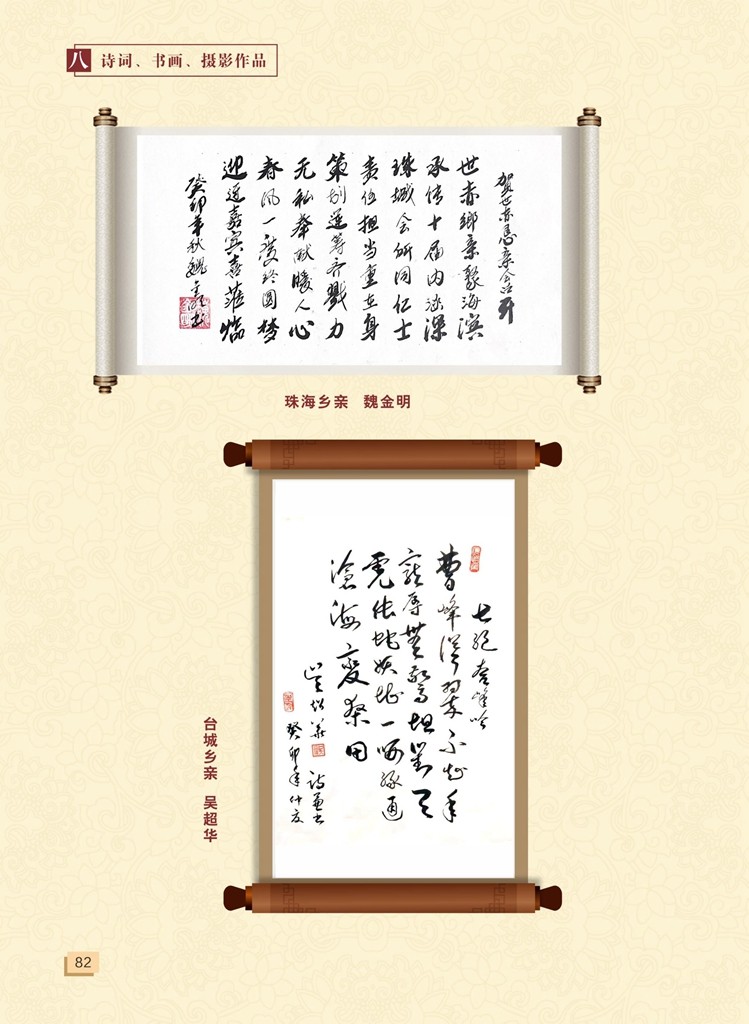 八 诗词、书画、摄影作品
贺世赤恳亲会召开
世赤鄉亲聚海滨
承传十届内涵深
珠城会所同仁士
责任担当重在身
策划运筹齐戮力
无私奉献暖人心
春风一度终圆梦
迎送嘉宾喜莅临
癸卯年秋魏金明书
珠海乡亲 魏金明
七绝 奎峰吟
叠峰滢翠不知年
宠辱無驚坦對天
一啸
滄海變桑田
吴超华 诗并书
癸卯年
台城乡亲 吴超华
82